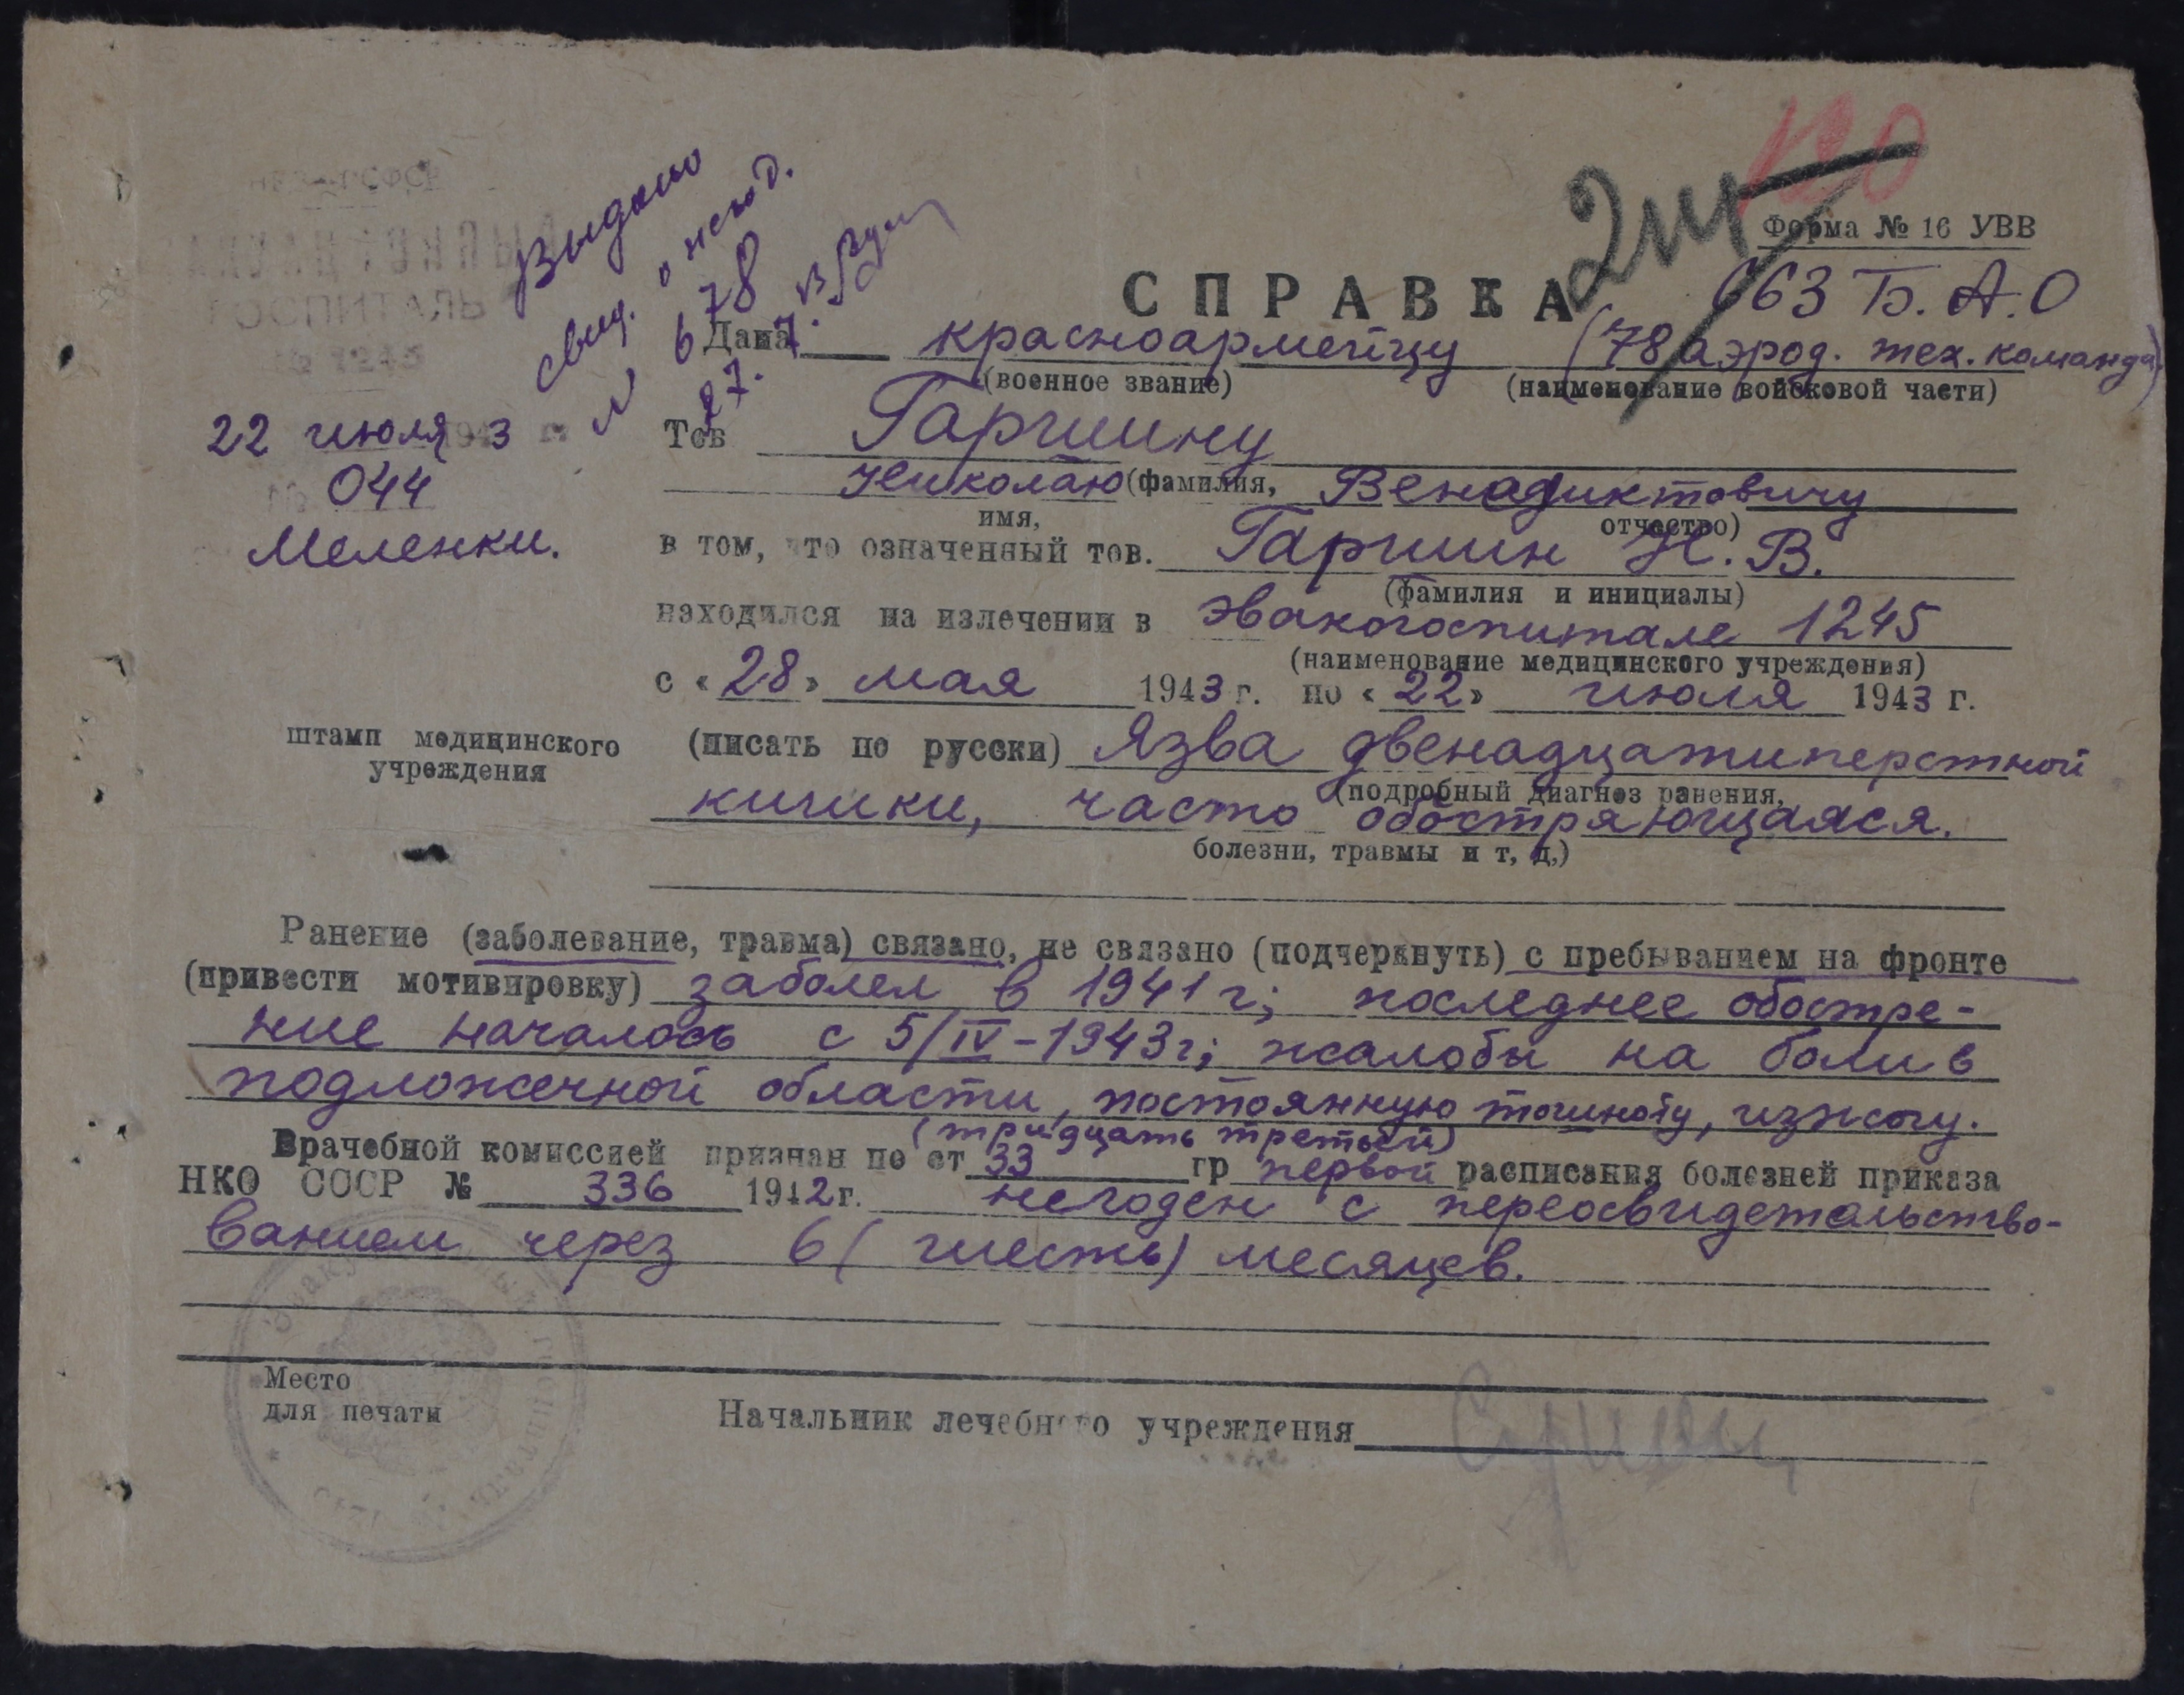 120
Форма № 16 УВВ
Выдано
свид. о негод.
№ 678
27.7.
ГОСПИТАЛЬ
№ 1245
22 июля 1943 г.
№ 044
Меленки.
штамп медицинского
учреждения
СПРАВКА
663 Б.А.О
Дана красноармейцу (78 аэрод. тех. команда)
(военное звание) (наименование войсковой части)
Тов Гаршину
Николаю (фамилия, Венадиктовичу
имя, отчество)
в том, что означенный тов. Гаршин Н. В.
(фамилия и инициалы)
находился на излечении в Эвакогоспитале 1245
(наименование медицинского учреждения)
с «28» мая 1943 г. по «22» июля 1943 г.
(писать по русски) Язва двенадцатиперстной
(подробный диагноз ранения,
кишки, часто обостряющаяся.
болезни, травмы и т, д,)
Ранение (заболевание, травма) связано, не связано (подчеркнуть) с пребыванием на фронте
(привести мотивировку) заболел в 1941 г; последнее обостре-
ние началось с 5/IV-1943 г; жалобы на боли в
подложечной области, постоянную тошноту, изжогу.
(тридцать третьей)
Врачебной комиссией признан по ст 33 гр первой расписания болезней приказа
НКО СССР № 336 1942 г. негоден с переосвидетельство-
ванием через 6 (шесть) месяцев.
Место
для печати
Начальник лечебного учреждения